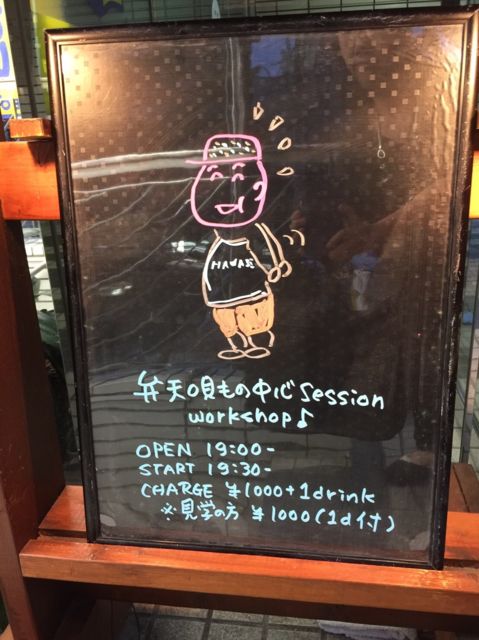 弁天唄もの中心Session
workshop♪
OPEN 19:00-
START 19:30-
CHARGE ¥1000+1drink
※見学の方 ¥1000(1d付)